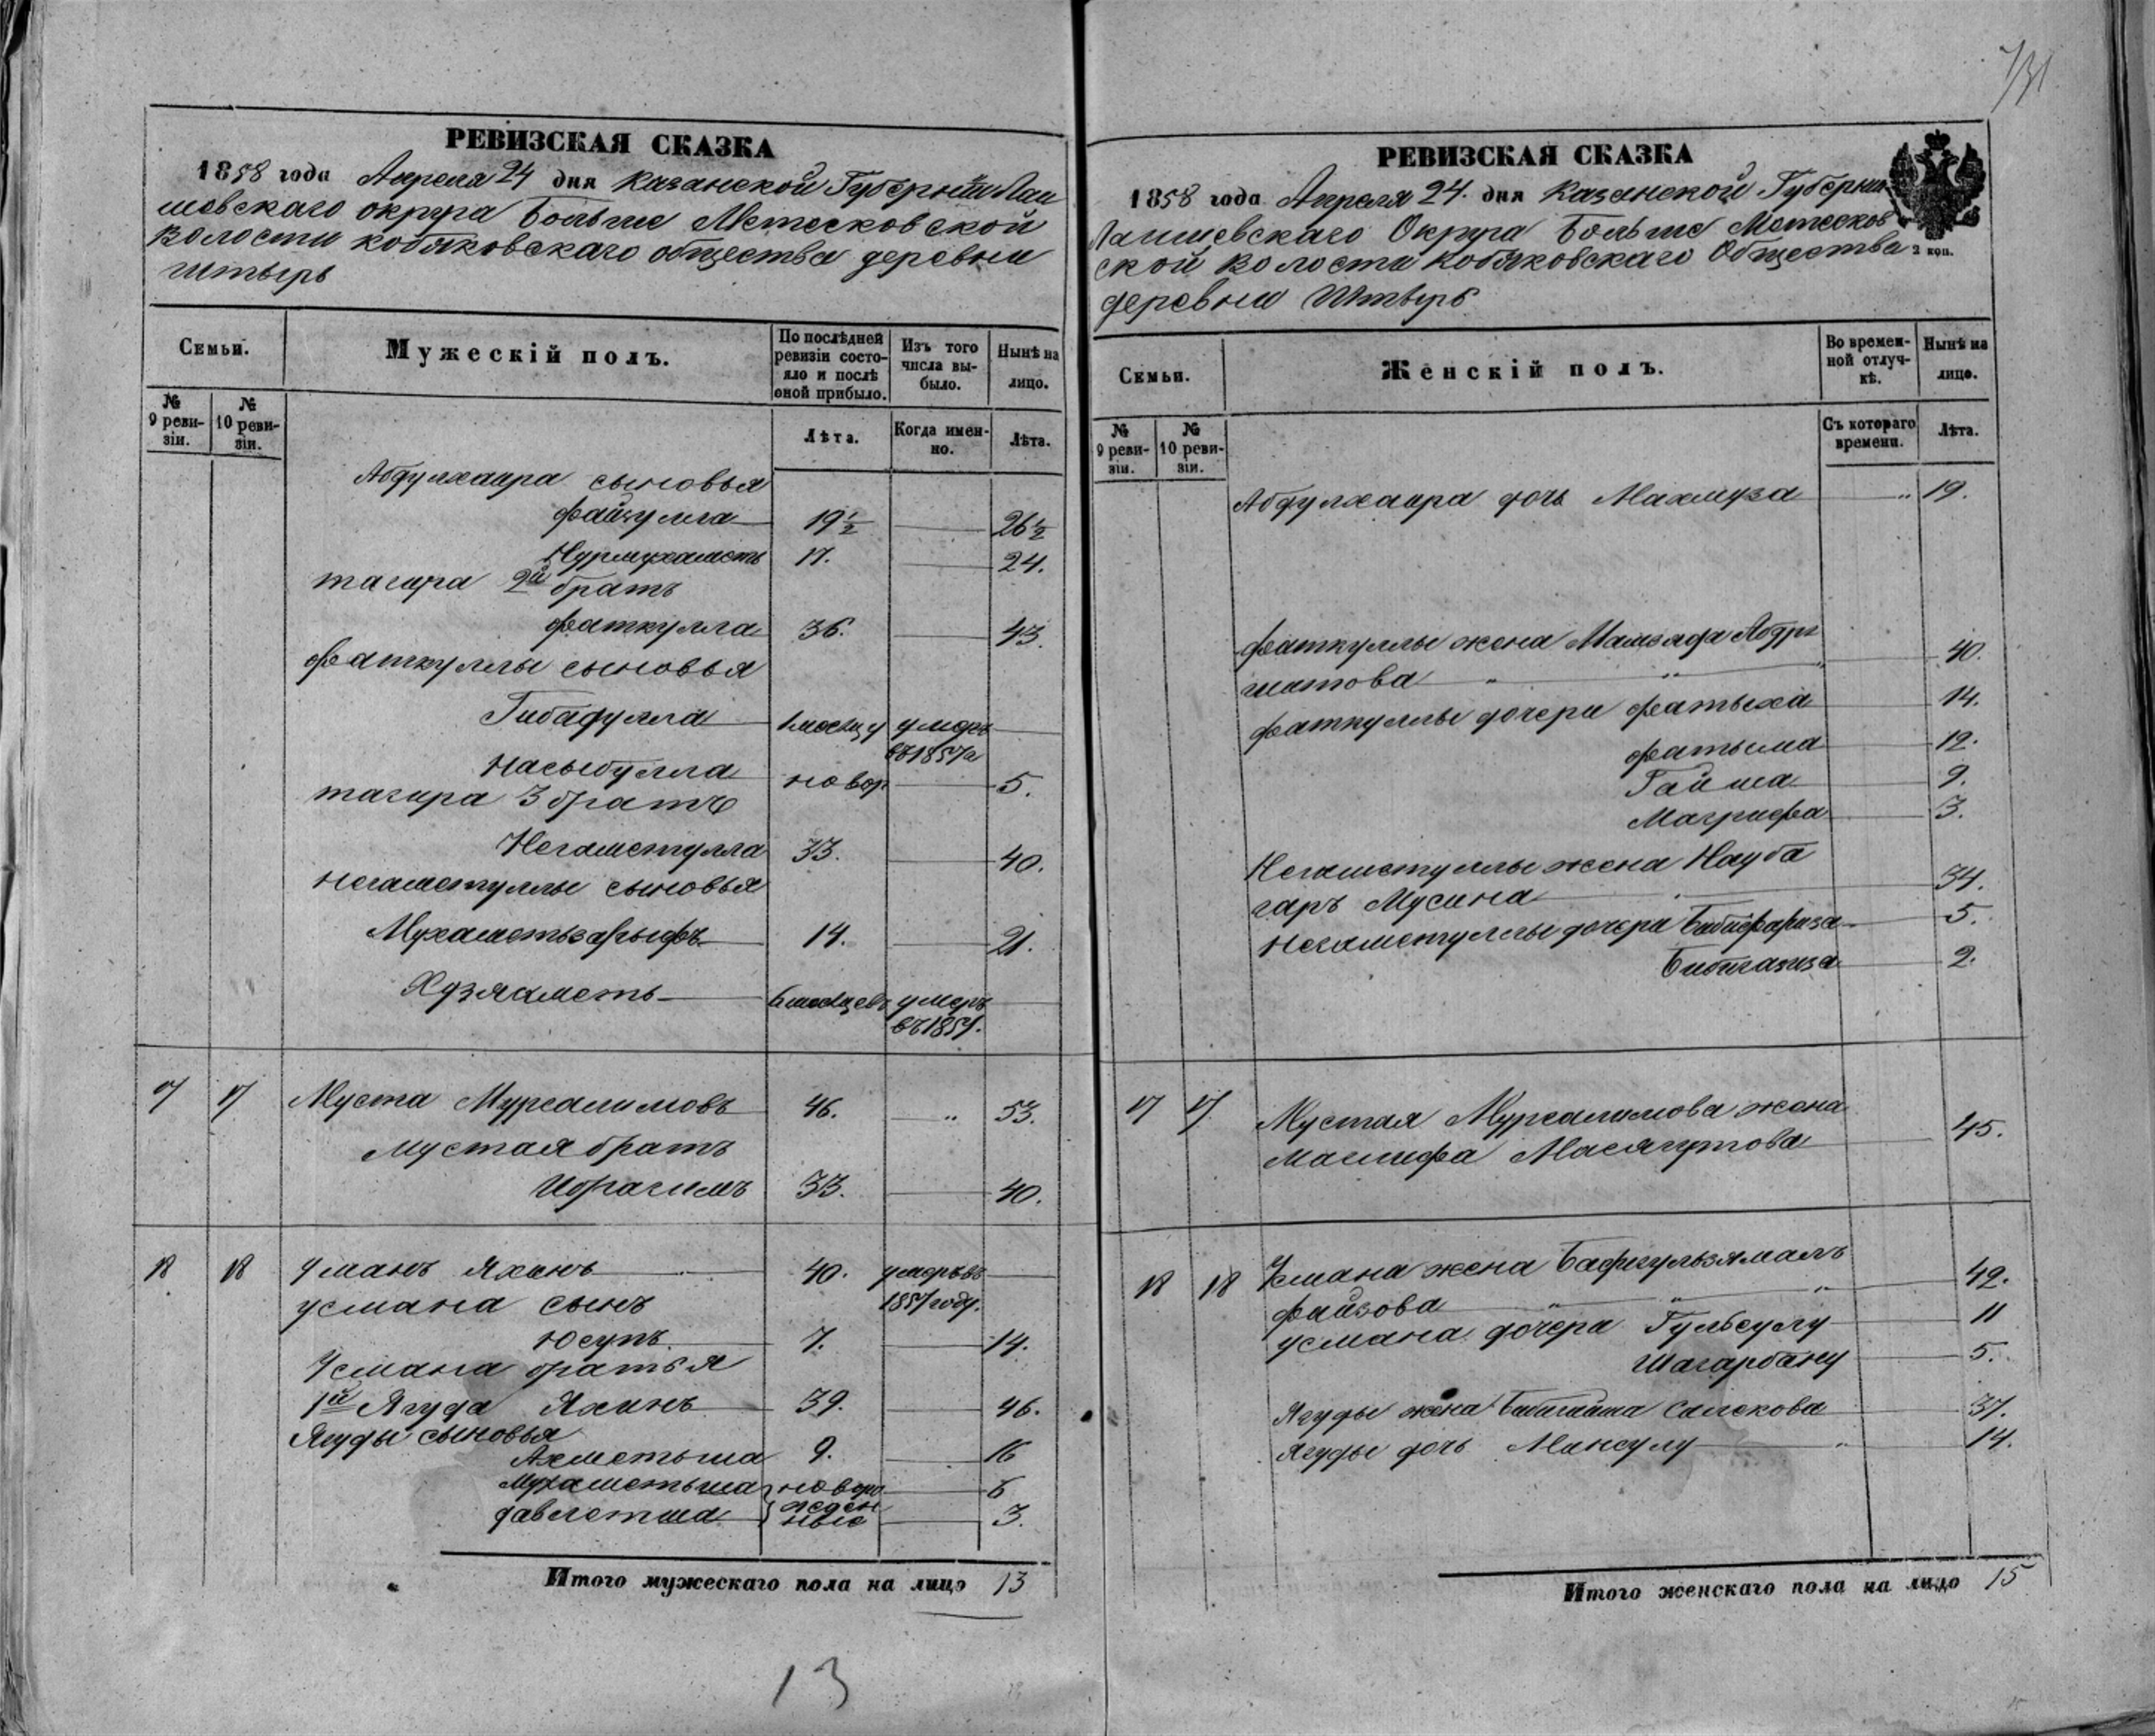 РЕВИЗСКАЯ СКАЗКА
1858 года Апреля 24 дня Казанской Губерніи Лаи
шевскаго округа Больше Метесковской
волости кобяковскаго общества деревни
Штырь
Семьи.
Мужескій полъ.
По послѣдней ревизіи состояло и послѣ оной прибыло.
Изъ того числа выбыло.
Нынѣ на лицо.
№ 9 ревизіи.
№ 10 ревизіи.
Лѣта.
Когда именно.
Лѣта.
Абдулхаира сыновья
Файзулла 19½ 26½
Нурмухаметъ 17. 24.
тагира 2й братъ
Фаткулла 36. 43.
Фаткуллы сыновья
Гибадулла умеръ
въ 1857
Насыбулла новор 5.
тагира 3 братъ
Негаметулла 33. 40.
Негаметуллы сыновья
Мухаметьзарыфъ 14. 21.
Худзяметь 6 месяцевъ умеръ
въ 1851.
17 17 Муста Мурсалимовъ 46. „ 53.
Мустая братъ
Ибрагимъ 33. 40.
18 18 Усманъ Яхинъ 40. умеръ въ
усмана сынъ 1857 году.
Юсупъ 7. 14.
Усмана братья
1й Ягуда Яхинъ 39. 46.
Ягуды сыновья
Ахметьша 9. 16
Мухаметьша новоро 6
давлетша жден ные 3.
Итого мужескаго пола на лицо 13
13
1/31
РЕВИЗСКАЯ СКАЗКА
1858 года Апреля 24. дня Казанской Губерніи
Лаишевскаго Округа Больше Метесков
ской волости кобяковскаго Общества
2 коп.
деревни Штырь
Семьи.
Женскій полъ.
Во временной отлучкѣ.
Нынѣ на лицо.
№ 9 ревизіи.
№ 10 ревизіи.
Съ котораго времени.
Лѣта.
Абдулхаира дочь Махмуза „ 19.
Фаткуллы жена
шатова „ „ „ 40.
Фаткуллы дочери Фатыха 14.
Фатыма 12.
Гайша 9.
Магрифа 3.
Негаметуллы жена Науба
гаръ Мусина 34.
Негаметуллы дочери Бибифариза 5.
Бибигазиза 2.
17 17. Мустая Мурсалимова жена
Маглифа Масягутова 45.
18 18 Усмана жена Бафигульзямалъ
Файзова „ „ „ 42.
усмана дочери Гульсулу 11
Шагарбану 5.
Ягуды жена Бибигайша Салехова 37.
Ягуды дочь Минсулу „ 14.
Итого женскаго пола на лицо 15